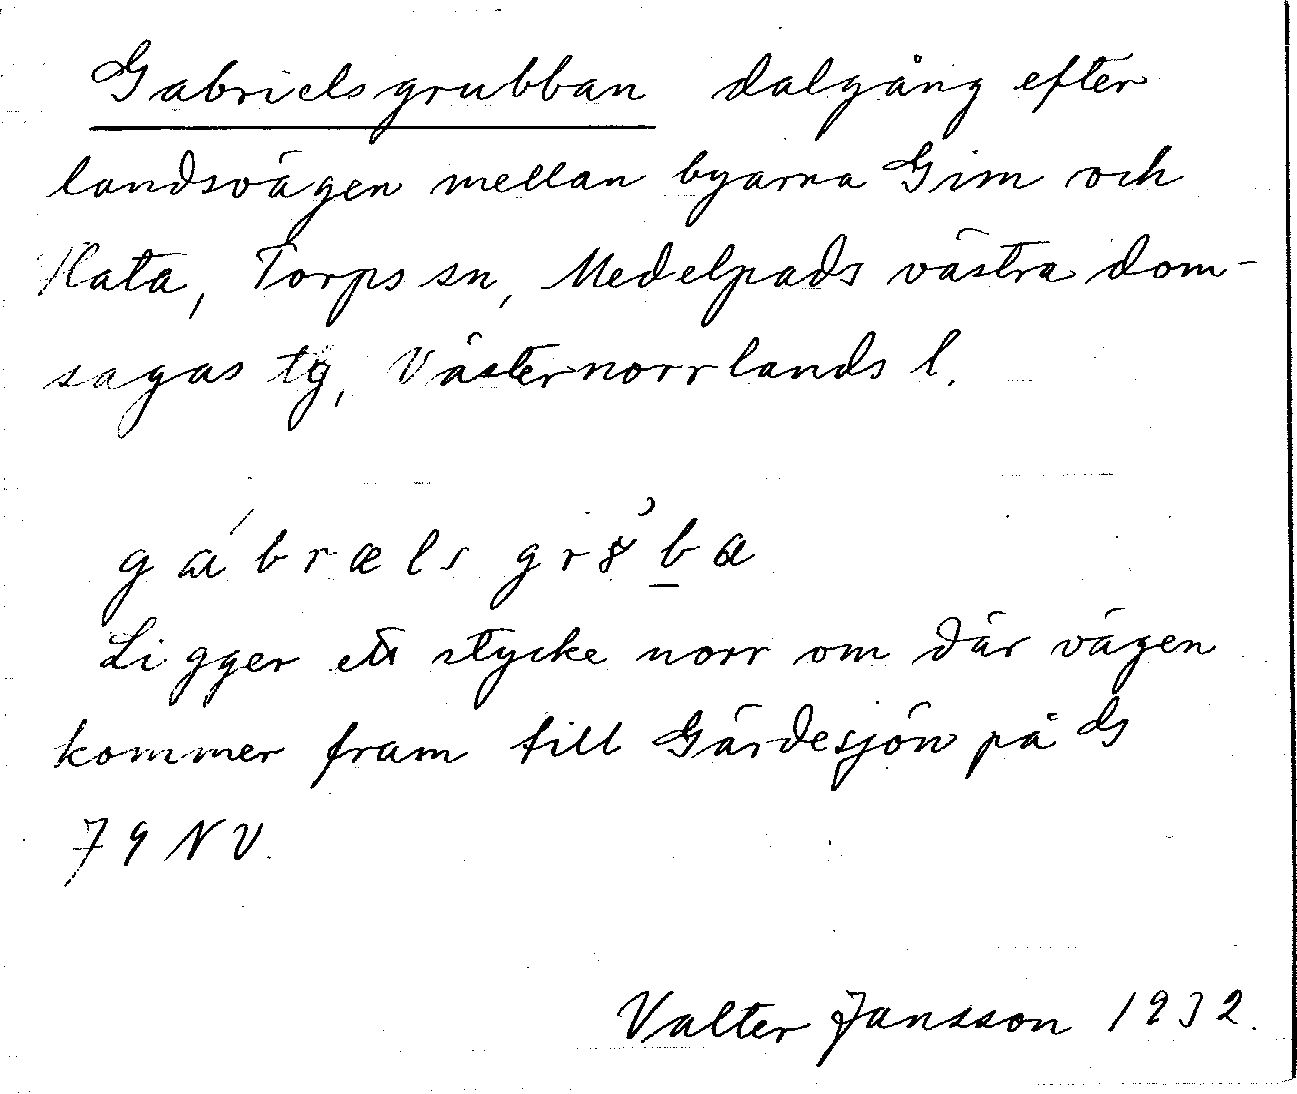 Gabrielsgrubban dalgång efter
landsvägen mellan byarna Gim och
Hata, Torps sn, Medelpads västra dom-
sagas tg, Västernorrlands l.
gábræls gr8̆ba
Ligger ett stycke norr om där vägen
kommer fram till Gärdesjön på G
79 NV.
Valter Jansson 1932.